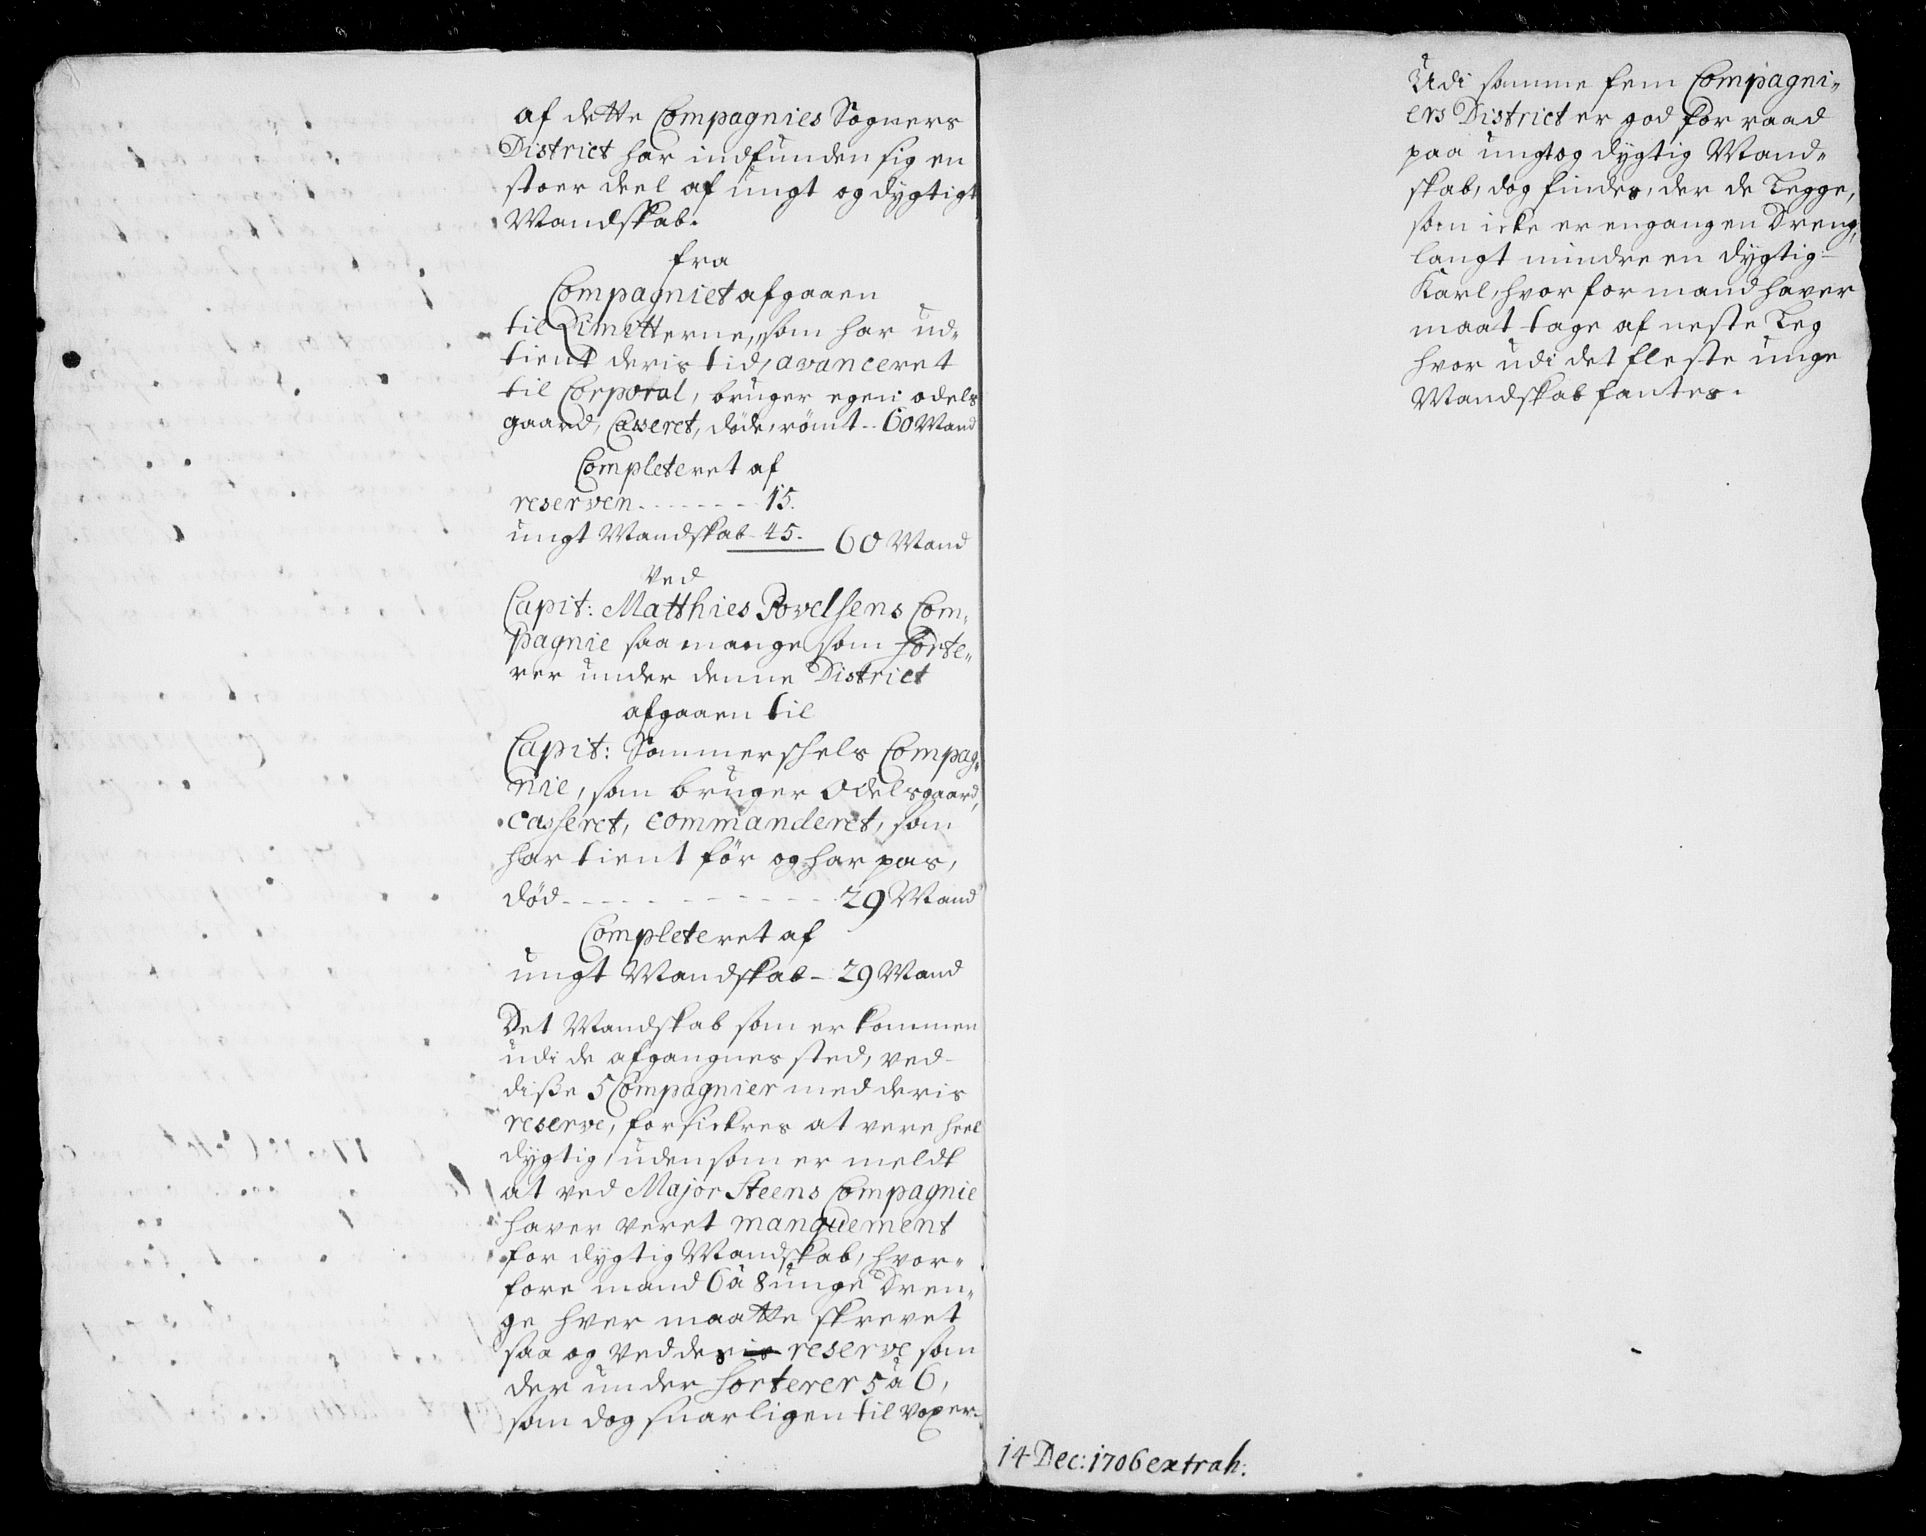 af dette Compagnies Sogners
District har indfunden sig en
stoer deel af ungt og dygtigt
Mandskab.
fra
Compagniet afgaaen
til Limitterne, som har ud„
tient deris tid, avanceret
til Corporal, bruger egen odels
gaard, Casseret, döde, römt -- 60 Mand
Completeret af
reserven - - - - - - - 15.
ungt Mandskab - 45. 60 Mand
Ved
Capit: Matthies Povelsens Com„
pagnie saa mange som sorte„
rer under denne District
afgaaen til
Capit: Sommerschels Compag„
nie, som bruger Odelsgaard,
casseret, commanderet, som
har tient för og har pas,
död - - - - - - - - - - - 29 Mand
Completeret af
ungt Mandskab - 29 Mand
Det Mandskab som er kommen
udi de afgangnes sted, ved
diße 5 Compagnier med deris
reserve, forsickres at vere heel
dygtig, uden som er meldt
at ved Major Steens Compagnie
haver veret manquement
for dygtig Mandskab, hvor„
fore mand 6 à 8 unge Dren„
ge hver maatte skrevet
saa og ved des reserve som
der under sorterer 5 à 6,
som dog snarligen til voxer.
Udi samme fem Compagni„
ers District er god forraad
paa ungt og dygtig Mand„
skab, dog findes, der de Legge,
som icke er engang en Dreng,
langt mindre en dygtig
Karl, hvor for mand haver
maat tage af neste Leg
hvor udi det fleste unge
Mandskab fantes.
14 Dec: 1706 extrah: